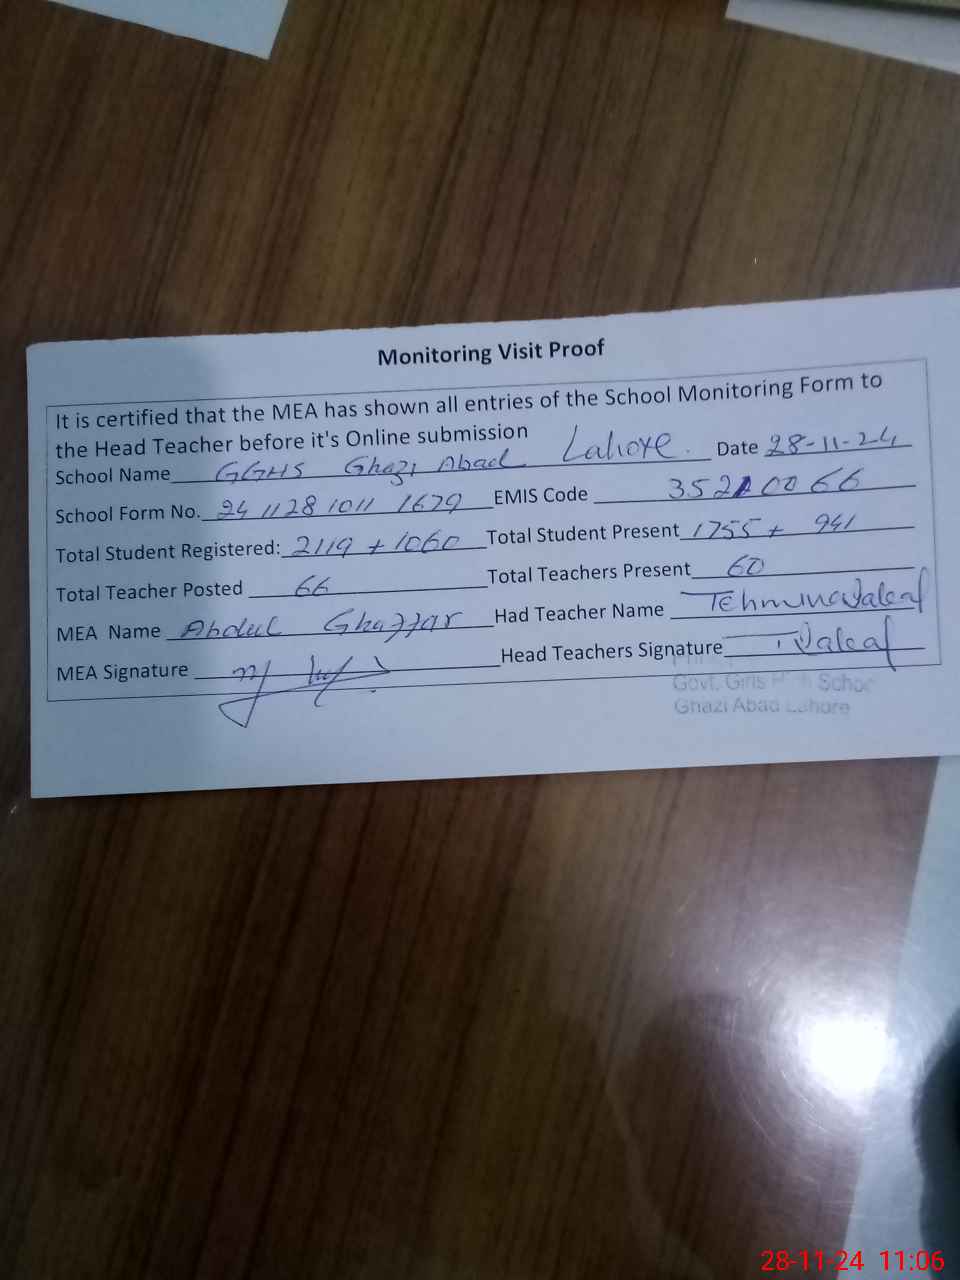 Monitoring Visit Proof
It is certified that the MEA has shown all entries of the School Monitoring Form to
the Head Teacher before it's Online submission
School Name GGHS Ghazi Abad Lahore. Date 28-11-24
School Form No. 24 1128 1011 1679 EMIS Code 35210066
Total Student Registered: 2119 + 1060 Total Student Present 1755 + 941
Total Teacher Posted 66 Total Teachers Present 60
MEA Name Abdul Ghaffar Had Teacher Name Tehmina Jaleaf
MEA Signature Head Teachers Signature
Govt. Girls High School
Ghazi Abad Lahore
28-11-24 11:06